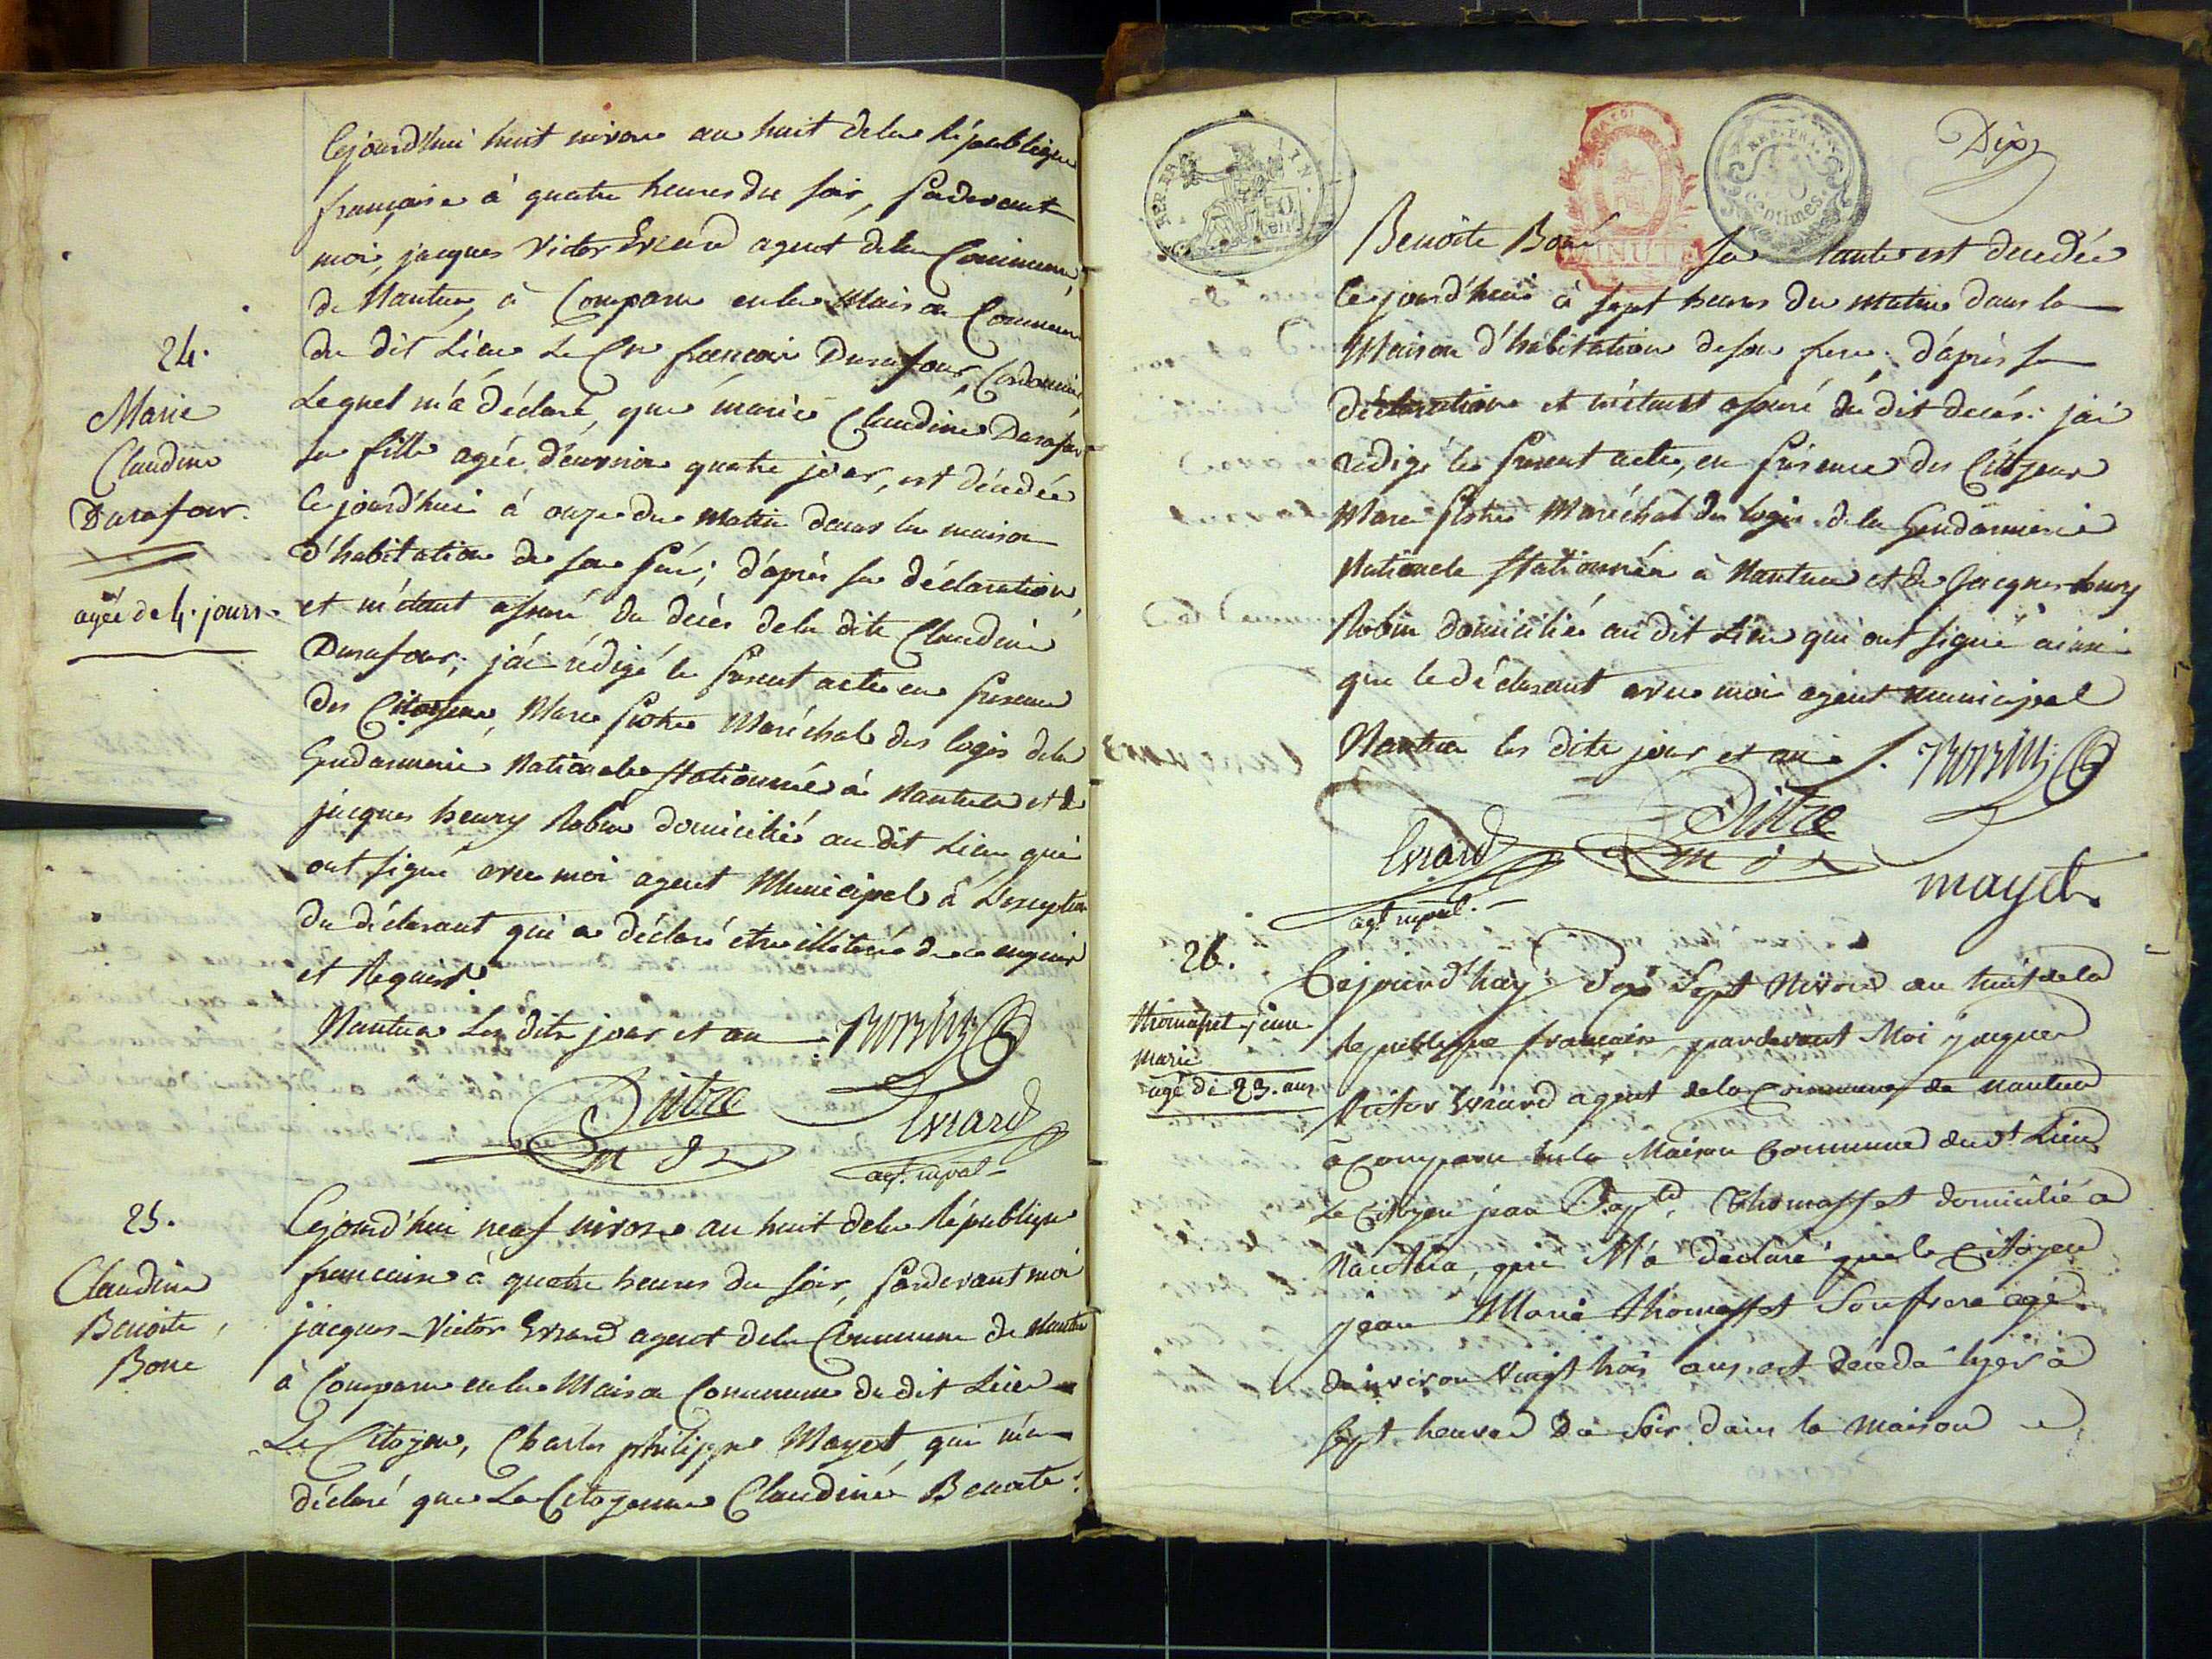 Cejourd'hui huit nivose an huit dela République
française à quatre heures du soir, pardevant
moi, jacques Victor Evrard agent dela Commune
de Nantua, à Comparu enla Maison Commune
du dit Lieu Le Cen francois Durafour, Cordonnier,
Lequel m'a déclaré, que marie Claudine Durafour
sa fille agée d'environ quatre jour, est décédée
Cejourd'hui à onze du matin dans la maison
d'habitation de son père; d'après sa déclaration,
et m'étant assuré du décès dela dite Claudine
Durafour; j'ai rédigé le present acte en presence
des Citoyens, Marc pistre Maréchal des logis dela
Gendarmerie Nationale stationnée à Nantua et de
jacques henry Robin domicilié au dit Lieu qui
ont signé avec moi agent Municipal à L'exception
du déclarant qui a déclaré etre illiteré de ce enquis
et Requis.
Nantua Les dits jour et an ROBIN
Pistre
m d L
Evrard
agt. mpal
24.
Marie
Claudine
Durafour.
agée de 4. jours.
25.
Claudine
Benoite
Bone
Cejourd'hui neuf nivose an huit dela République
francaise à quatre heures du soir, pardevant moi
jacques-Victor Evrard agent dela Commune de Nantua
à Comparu enla Maison Commune du dit Lieu
Le Citoyen, Charles philippe Mayet, qui m'a
déclaré que La Citoyenne Claudine Benoite
REP. FRA.
50
cent.
MINUTE
REP. FRA.
centimes.
Dix
Benoite Boné sa tante est décédée
Cejourd'hui à sept heures du matin dans la
Maison d'habitation de son frere; d'après sa
déclaration et m'étant assuré du dit decés: j'ai
redigé le present acte, en présence des Citoyens
Marc pistre Maréchal des logis dela Gendarmerie
Nationale stationnée à Nantua et de Jacques henry
Robin domicilié au dit Lieu qui ont signé ainsi
que le déclarant avec moi agent municipal
Nantua les dits jour et an. ROBIN
Pistre
m d L
Evrard
agt mpal.
mayet
26.
thomasset jean
marie
agé de 23. ans
Cejourd'huy dix Sept Nivose an huit dela
Republique francaise, pardevant Moi jacques
Victor Evrard agent dela Commune de Nantua
a comparu enla Maison Commune dudt Lieu
Le Citoyen jean Bapte Thomasset domicilié a
Nantua, qui M'a déclaré que le Citoyen
jean Marie thomasset Son frere agé
denviron vingt trois ans, est décédé hyer à
sept heures du Soir dans la maison